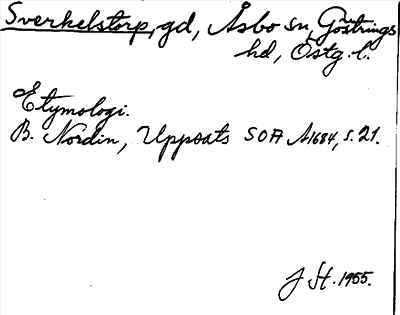 Sverkelstorp, gd, Åsbo sn, Göstrings
hd, Östg. l.
Etymologi.
B. Nordin, Uppsats SOA A1684, s. 21.
J St. 1955.